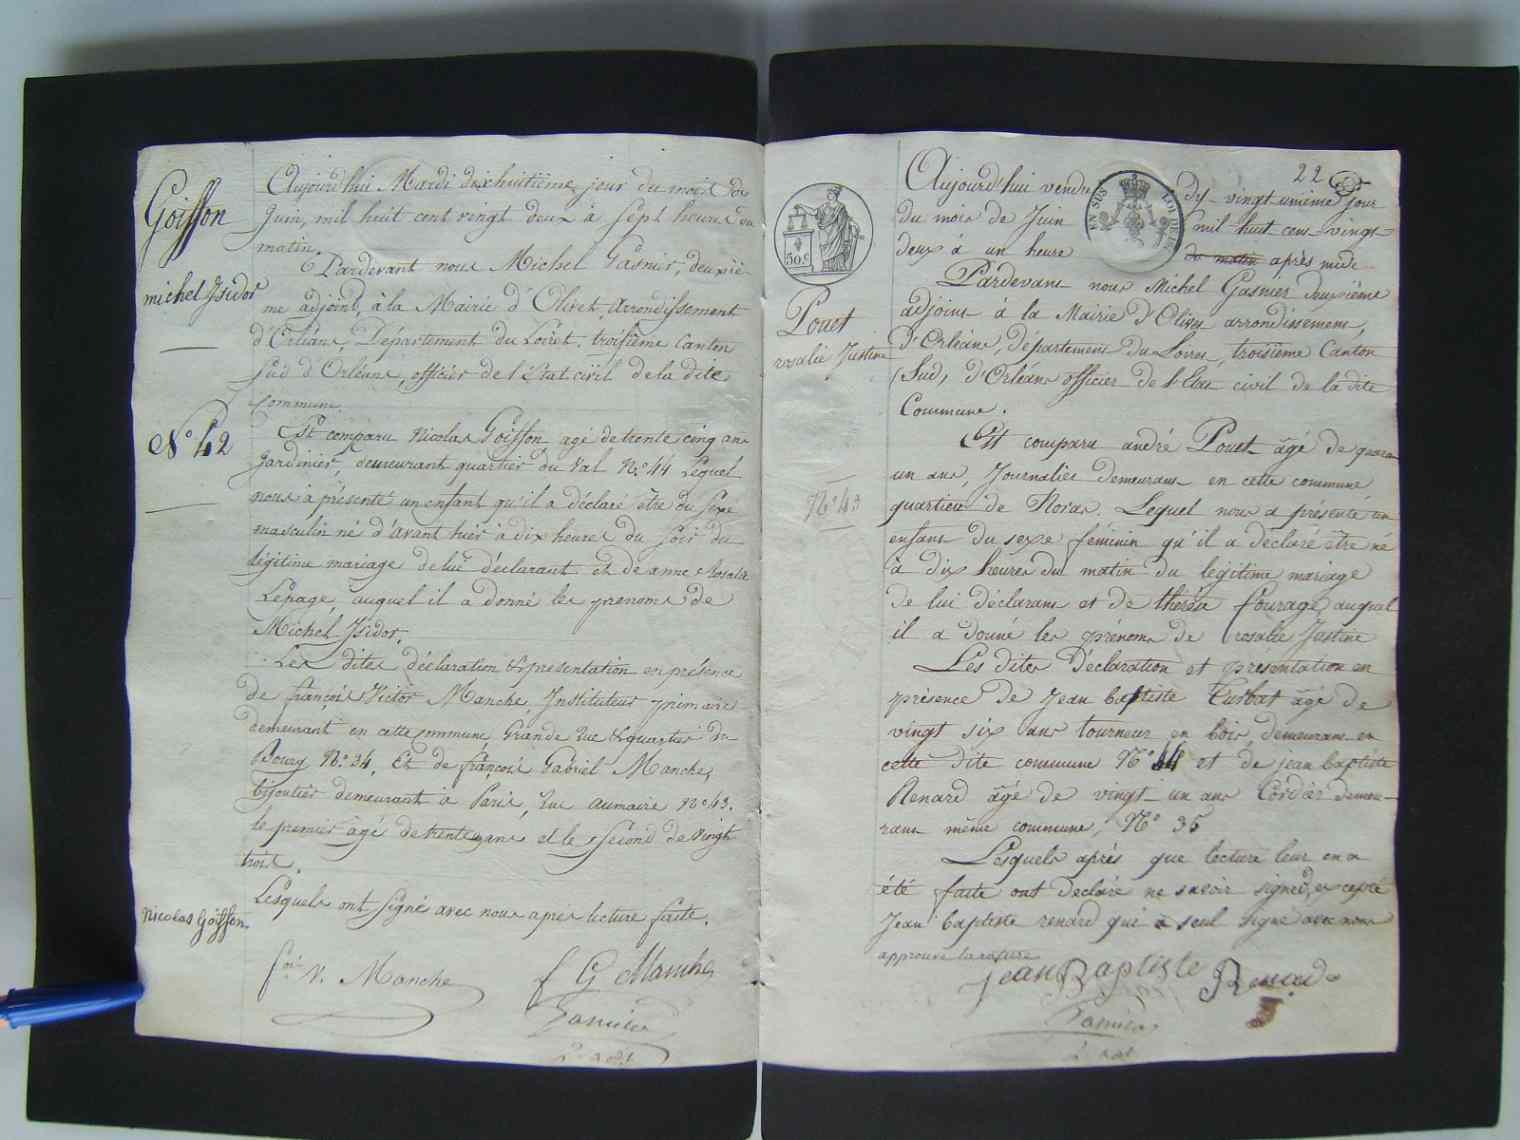 Goisson
michel Isidor
N.o 42
Nicolas Goisson
Aujourd'hui Mardi dixhuitième jour du mois de
Juin, mil huit cent vingt deux à sept heures du
matin,
Pardevant nous Michel Gasnier, deuxiè-
me adjoint, à la Mairie d'Olivet arrondissement
d'Orléans, Département du Loiret, troisième Canton
sud d'Orléans, officier de l'état civil de la dite
commune.
Est comparu Nicolas Goisson agé de trente cinq ans
Jardinier, demeurant quartier du Val N.o 44 Lequel
nous a présenté un enfant qu'il a déclaré être du sexe
masculin né d'avant hier à dix heures du soir du
légitime mariage de lui déclarant et de anne Rosalie
Lepage, auquel il a donné les prenoms de
Michel Isidor.
Les dites déclaration & présentation en présence
de françois Victor Manche, Instituteur primaire
demeurant en cette commune Grande rue & quartier du
Bourg N.o 34, Et de françois Gabriel Manche,
bijoutier demeurant à Paris, rue aumaire N.o 43.
le premier agé de trente ans et le second de vingt
trois.
Lesquels ont signé avec nous après lecture faite.
f.ois V. Manche
f G Manche
Gasnier
22
50 c
EN SUS
Pouet
rosalie Justine
N.o 43
Aujourd'hui vendredy vingt unième jour
du mois de Juin mil huit cent vingt
deux à un heure du matin après midi
Pardevant nous Michel Gasnier deuxième
adjoint à la Mairie d'Olivet arrondissement,
d'Orléans, département du Loiret, troisième Canton
Sud, d'Orléans officier de l'Etat civil de la dite
Commune.
Est comparu andré Pouet âgé de quarante
un ans, Journalier demeurant en cette commune
quartier de Lequel nous a présenté un
enfant du sexe féminin qu'il a déclaré être né
à dix heures du matin du légitime mariage
de lui déclarant et de thérèse fourage, auquel
il a donné les prénoms de rosalie Justine
Les dites déclaration et présentation en
présence de Jean baptiste âgé de
vingt six ans tourneur en bois, demeurant en
cette dite commune N.o 44 et de jean baptiste
Renard âgé de vingt un ans Cordier demeu-
rant même commune, N.o 35
Lesquels après que lecture leur en a
été faite ont déclaré ne savoir signer, excepté
Jean baptiste renard qui a seul signé avec nous
approuvé la rature
jean Baptiste Renard
Gasnier